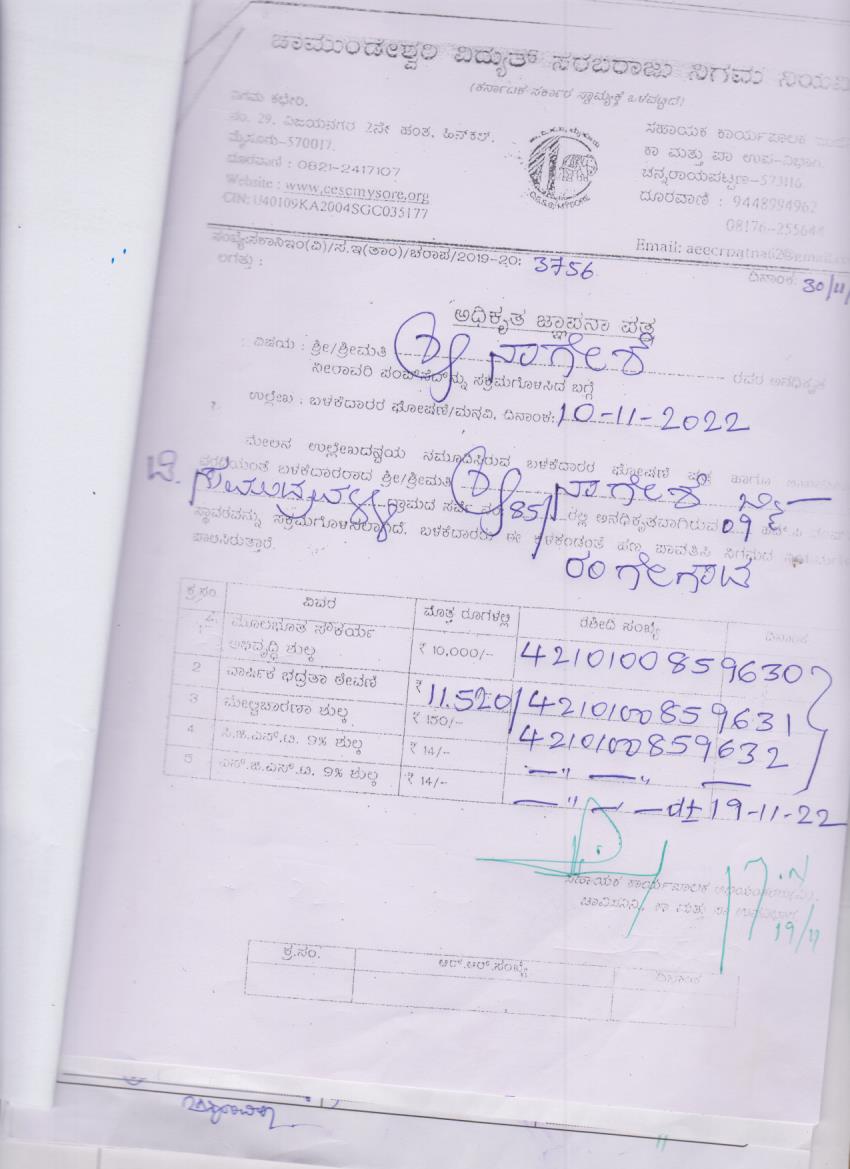 ಚಾಮುಂಡೇಶ್ವರಿ ವಿದ್ಯುತ್ ಸರಬರಾಜು ನಿಗಮ
(ಕರ್ನಾಟಕ ಸರ್ಕಾರ ಸ್ವಾಮ್ಯಕ್ಕೆ ಒಳಪಟ್ಟಿದೆ)
ನಿಗಮ ಕಛೇರಿ.
ನಂ. 29, ವಿಜಯನಗರ 2ನೇ ಹಂತ, ಹಿನ್‌ಕಲ್.
ಮೈಸೂರು-570017.
ದೂರವಾಣಿ : 0821-2417107
Website : www.cescmysore.org
CIN: U40109KA2004SGC035177
ಸಹಾಯಕ ಕಾರ್ಯಪಾಲಕ
ಕಾ ಮತ್ತು ಪಾ ಉಪ-ವಿಭಾಗ.
ಚನ್ನರಾಯಪಟ್ಟಣ-573116.
ದೂರವಾಣಿ : 9448994962
08176-255644
Email: aeecrpatna62@gmail.co
ಸಂಖ್ಯೆ:ಸಕಾನಿಇಂ(ವಿ)/ಸ.ಇ(ತಾಂ)/ಚರಾಪ/2019-20: 3756
ದಿನಾಂಕ: 30/11/
ಲಗತ್ತು :
ಅಧಿಕೃತ ಜ್ಞಾಪನಾ ಪತ್ರ
ವಿಷಯ : ಶ್ರೀ/ಶ್ರೀಮತಿ ನಾಗೇಶ ರವರ ಅನಧಿಕೃತ
ನೀರಾವರಿ ಪಂಪ್‌ಸೆಟ್‌ನ್ನು ಸಕ್ರಮಗೊಳಿಸಿದ ಬಗ್ಗೆ
ಉಲ್ಲೇಖ : ಬಳಕೆದಾರರ ಘೋಷಣೆ/ಮನವಿ, ದಿನಾಂಕ: 10-11-2022
ಮೇಲಿನ ಉಲ್ಲೇಖದನ್ವಯ ನಮೂದಿಸಿರುವ ಬಳಕೆದಾರರ ಘೋಷಣೆ ಪತ್ರ ಹಾಗೂ
ಬಳಕೆದಾರರಾದ ಶ್ರೀ/ಶ್ರೀಮತಿ ನಾಗೇಶ
ಗ್ರಾಮದ ಸರ್ವೆ ನಂ 85/ ರಲ್ಲಿ ಅನಧಿಕೃತವಾಗಿರುವ 09
ಸ್ಥಾವರವನ್ನು ಸಕ್ರಮಗೊಳಿಸಲಾಗಿದೆ. ಬಳಕೆದಾರರು ಈ ಕೆಳಕಂಡಂತೆ ಹಣ ಪಾವತಿಸಿ ನಿಗಮದ
ಪಾಲಿಸಿರುತ್ತಾರೆ.
ರಂಗೇಗೌಡ
ಕ್ರ.ಸಂ ವಿವರ ಮೊತ್ತ ರೂಗಳಲ್ಲಿ ರಶೀದಿ ಸಂಖ್ಯೆ ದಿನಾಂಕ
1 ಮೂಲಭೂತ ಸೌಕರ್ಯ
ಅಭಿವೃದ್ಧಿ ಶುಲ್ಕ ₹ 10,000/- 4210100859630
2 ವಾರ್ಷಿಕ ಭದ್ರತಾ ಠೇವಣಿ ₹ 11.520/ 4210100859631
3 ಮೇಲ್ವಿಚಾರಣಾ ಶುಲ್ಕ ₹ 150/- 4210100859632
4 ಸಿ.ಜಿ.ಎಸ್.ಟಿ. 9% ಶುಲ್ಕ ₹ 14/- — " — "
5 ಎಸ್.ಜಿ.ಎಸ್.ಟಿ. 9% ಶುಲ್ಕ ₹ 14/- — " — dt 19-11-22
ಸಹಾಯಕ ಕಾರ್ಯಪಾಲಕ ಅಭಿಯಂತರರು(ವಿ).
ಚಾವಿಸನಿನಿ, ಕಾ ಮತ್ತು ಪಾ ಉಪವಿಭಾಗ
19/11
ಕ್ರ.ಸಂ. ಆರ್.ಆರ್.ಸಂಖ್ಯೆ ದಿನಾಂಕ